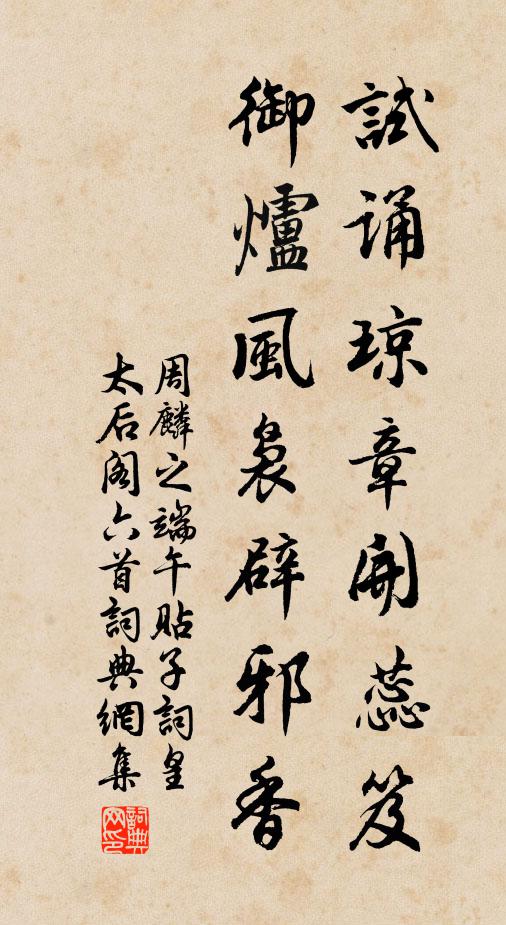 試诵琼章開蕊笈
御爐風裊辟邪香
周麟之端午貼子詞皇
太后阁六首詞典網集
詞典网印